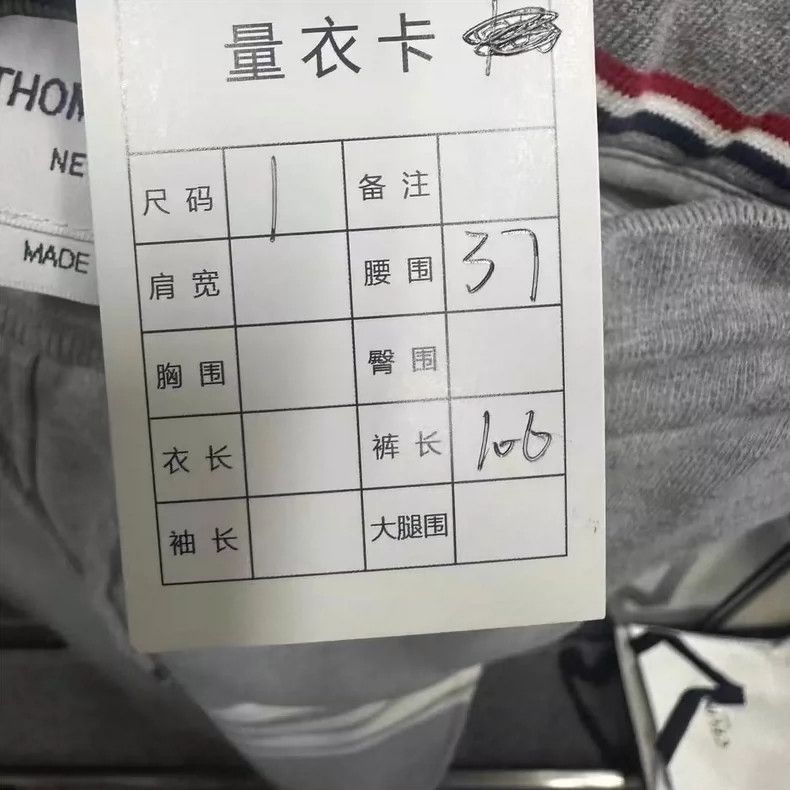 量衣卡
THOM
NE
MADE
尺码 1 备注
肩宽 腰围 37
胸围 臀围
衣长 裤长 106
袖长 大腿围